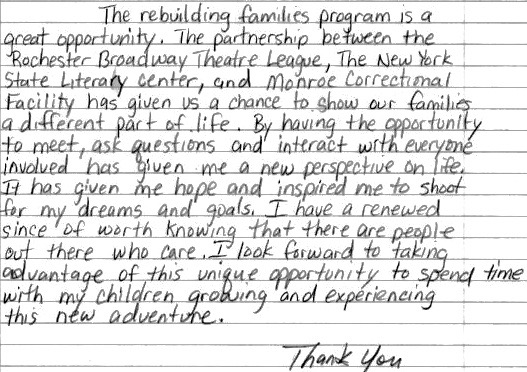 The rebuilding families program is a
great opportunity. The partnership between the
Rochester Broadway Theatre League, The New York
State Literary Center, and Monroe Correctional
Facility has given us a chance to show our families
a different part of life. By having the opportunity
to meet, ask questions and interact with everyone
involved has given me a new perspective on life.
It has given me hope and inspired me to shoot
for my dreams and goals. I have a renewed
since of worth knowing that there are people
out there who care. I look forward to taking
advantage of this unique opportunity to spend time
with my children growing and experiencing
this new adventure.
Thank You